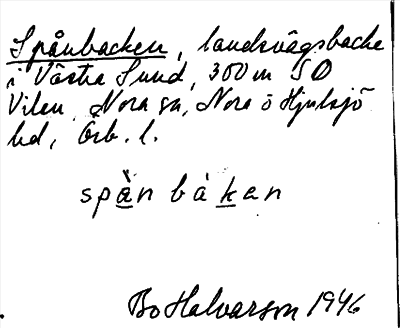 Spånbacken, landsvägsbacke
i Västra Sund, 300 m SO
Vilen, Nora sn, Nora o Hjulsjö
hd, Örb. l.
spà̱n bá ḵan
Bo Halvarson 1946